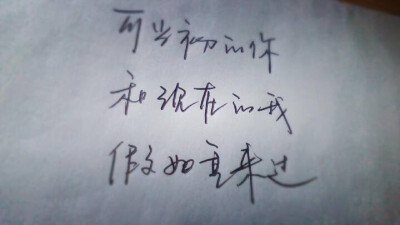 可当初的你
和现在的我
假如重来过